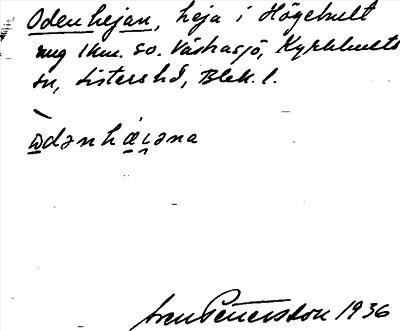 Odenhejan, heja i Högehult
ung 1 km. so. Västrasjö, Kyrkhults
sn, Listers hd, Blek. l.
ɷ̀dənhæɩəna
Sven Petersson 1936